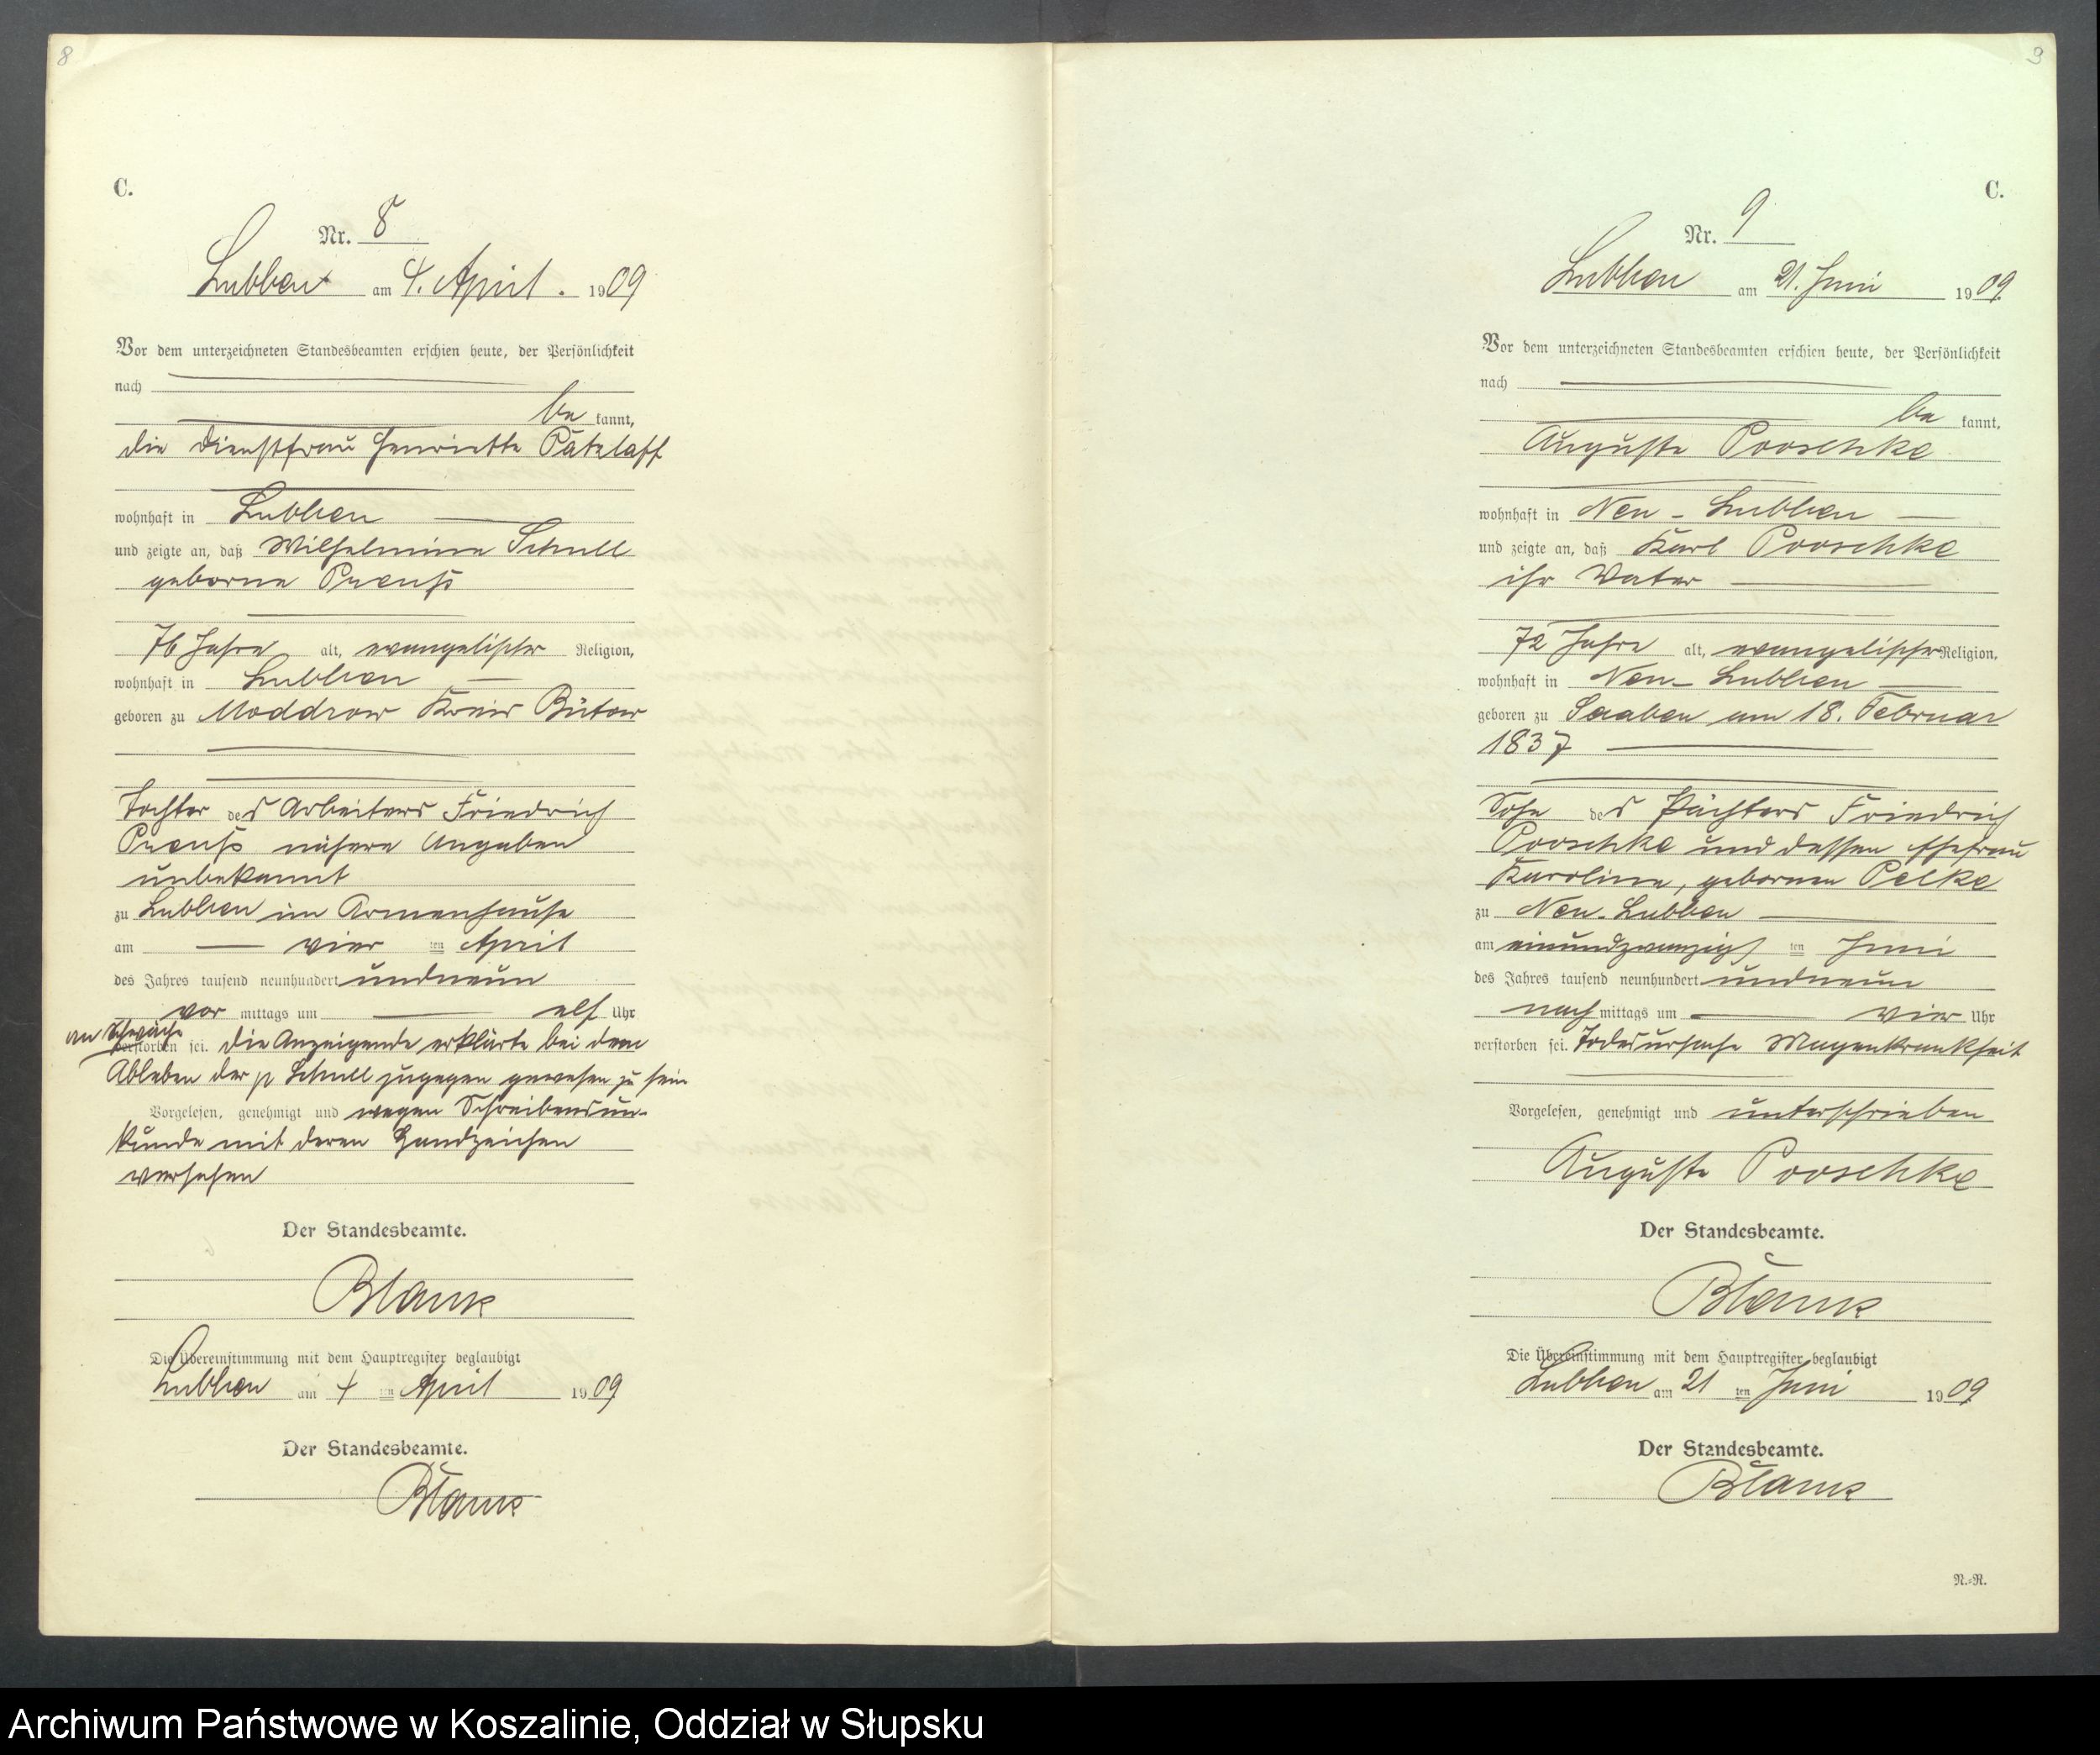 8
C.
Nr. 8
Lubben am 4. April. 1909
Vor dem unterzeichneten Standesbeamten erschien heute, der Persönlichkeit
nach
be kannt,
die Dienstfrau Henriette Pätzlaff
wohnhaft in Lubben
und zeigte an, daß Wilhelmine Schull
geborne Preuß
76 Jahre alt, evangelischer Religion,
wohnhaft in Lubben
geboren zu Moddrow Kreis Bütow
Tochter des Arbeiters Friedrich
Preuß nähere Angaben
unbekannt
zu Lubben im Armenhause
am vier ten April
des Jahres tausend neunhundert undneun
vor mittags um elf Uhr
an Schwäche
verstorben sei. Die Anzeigende erklärte bei dem
Ableben der p Schull zugegen gewesen zu sein
Vorgelesen, genehmigt und wegen Schreibensun-
kunde mit deren Handzeichen
versehen
Der Standesbeamte.
Blank
Die Übereinstimmung mit dem Hauptregister beglaubigt
Lubben am 4 ten April 1909
Der Standesbeamte.
Blank
9
C.
Nr. 9
Lubben am 21. Juni 1909.
Vor dem unterzeichneten Standesbeamten erschien heute, der Persönlichkeit
nach
be kannt,
Auguste Pooschke
wohnhaft in Neu-Lubben
und zeigte an, daß Karl Pooschke
ihr Vater
72 Jahre alt, evangelischer Religion,
wohnhaft in Neu-Lubben
geboren zu Saaben am 18. Februar
1837
Sohn des Pächters Friedrich
Pooschke und dessen Ehefrau
Karoline, gebornen Pelke
zu Neu-Lubben
am einundzwanzigs ten Juni
des Jahres tausend neunhundert undneun
nach mittags um vier Uhr
verstorben sei. Todesursache Magenkrankheit
Vorgelesen, genehmigt und unterschrieben
Auguste Pooschke
Der Standesbeamte.
Blank
Die Übereinstimmung mit dem Hauptregister beglaubigt
Lubben am 21 ten Juni 1909.
Der Standesbeamte.
Blank
N.-R.
Archiwum Państwowe w Koszalinie, Oddział w Słupsku